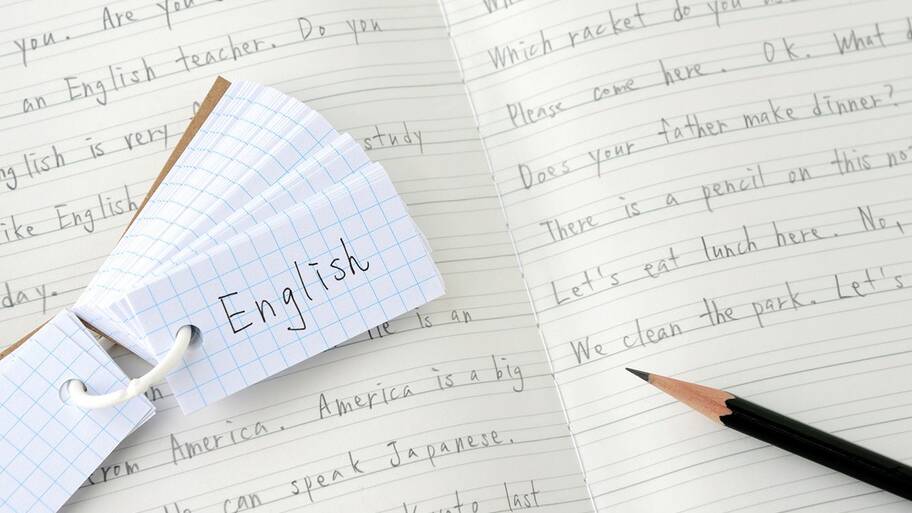 you. Are you
an English teacher. Do you
English is very
study
like English
day.
English
He is an
from America. America is a big
He can speak Japanese.
last
Which racket do you
Please come here. Ok. What
Does your father make dinner?
There is a pencil on this
Let's eat lunch here. No,
We clean the park. Let's